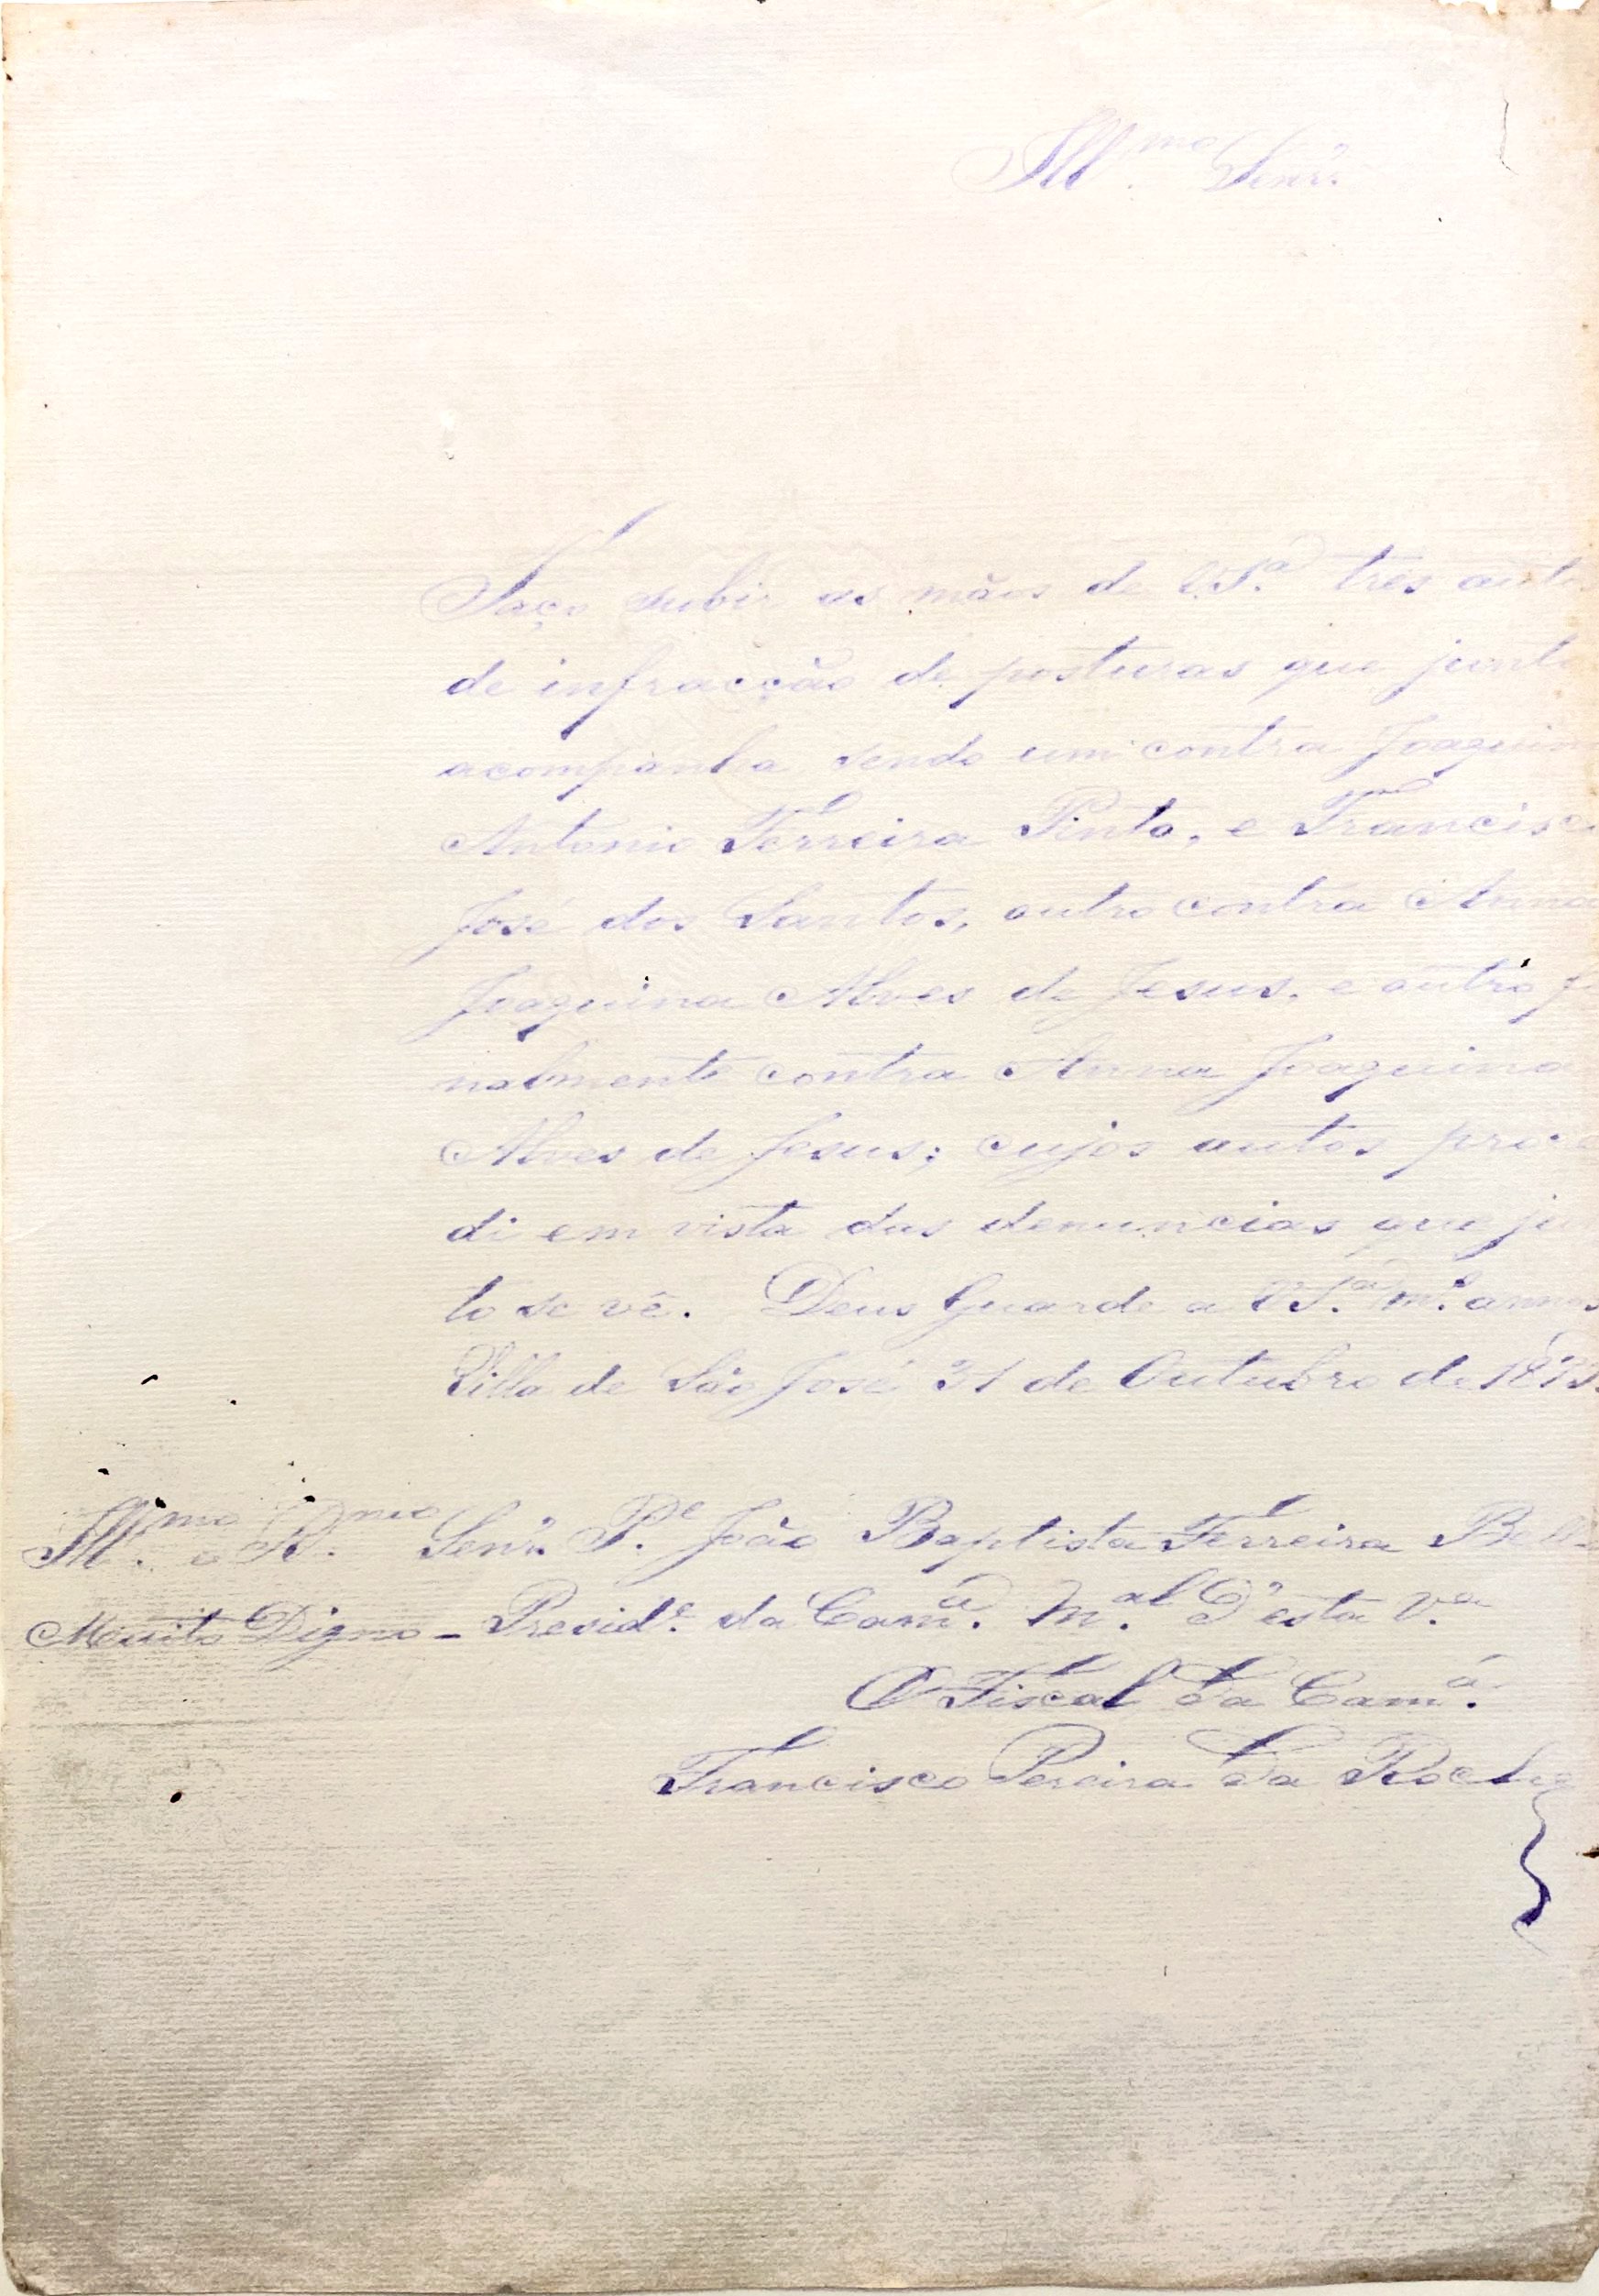 Ill.mo Senr.
Faço subir as mãos de V.S.a três auto
de infracção de posturas que junto
acompanha sendo um contra Joaquim
Antonio Ferreira Pinto, e Francisco
José dos Santos, outro contra Anna
Joaquina Alves de Jesus, e outro fi
nalmente contra Anna Joaquina
Alves de Jesus; cujos autos proce
di em vista das denuncias que ju
to se vê. Deus Guarde a V.S.a m.s annos
Villa de São José 31 de Outubro de
Ill.mo e R.mo Senr. P.e João Baptista Ferreira Bell
Muito Digno - Presid.e da Cam.a M.al D'esta V.a
O Fiscal da Cam.a
Francisco Pereira da Rocha